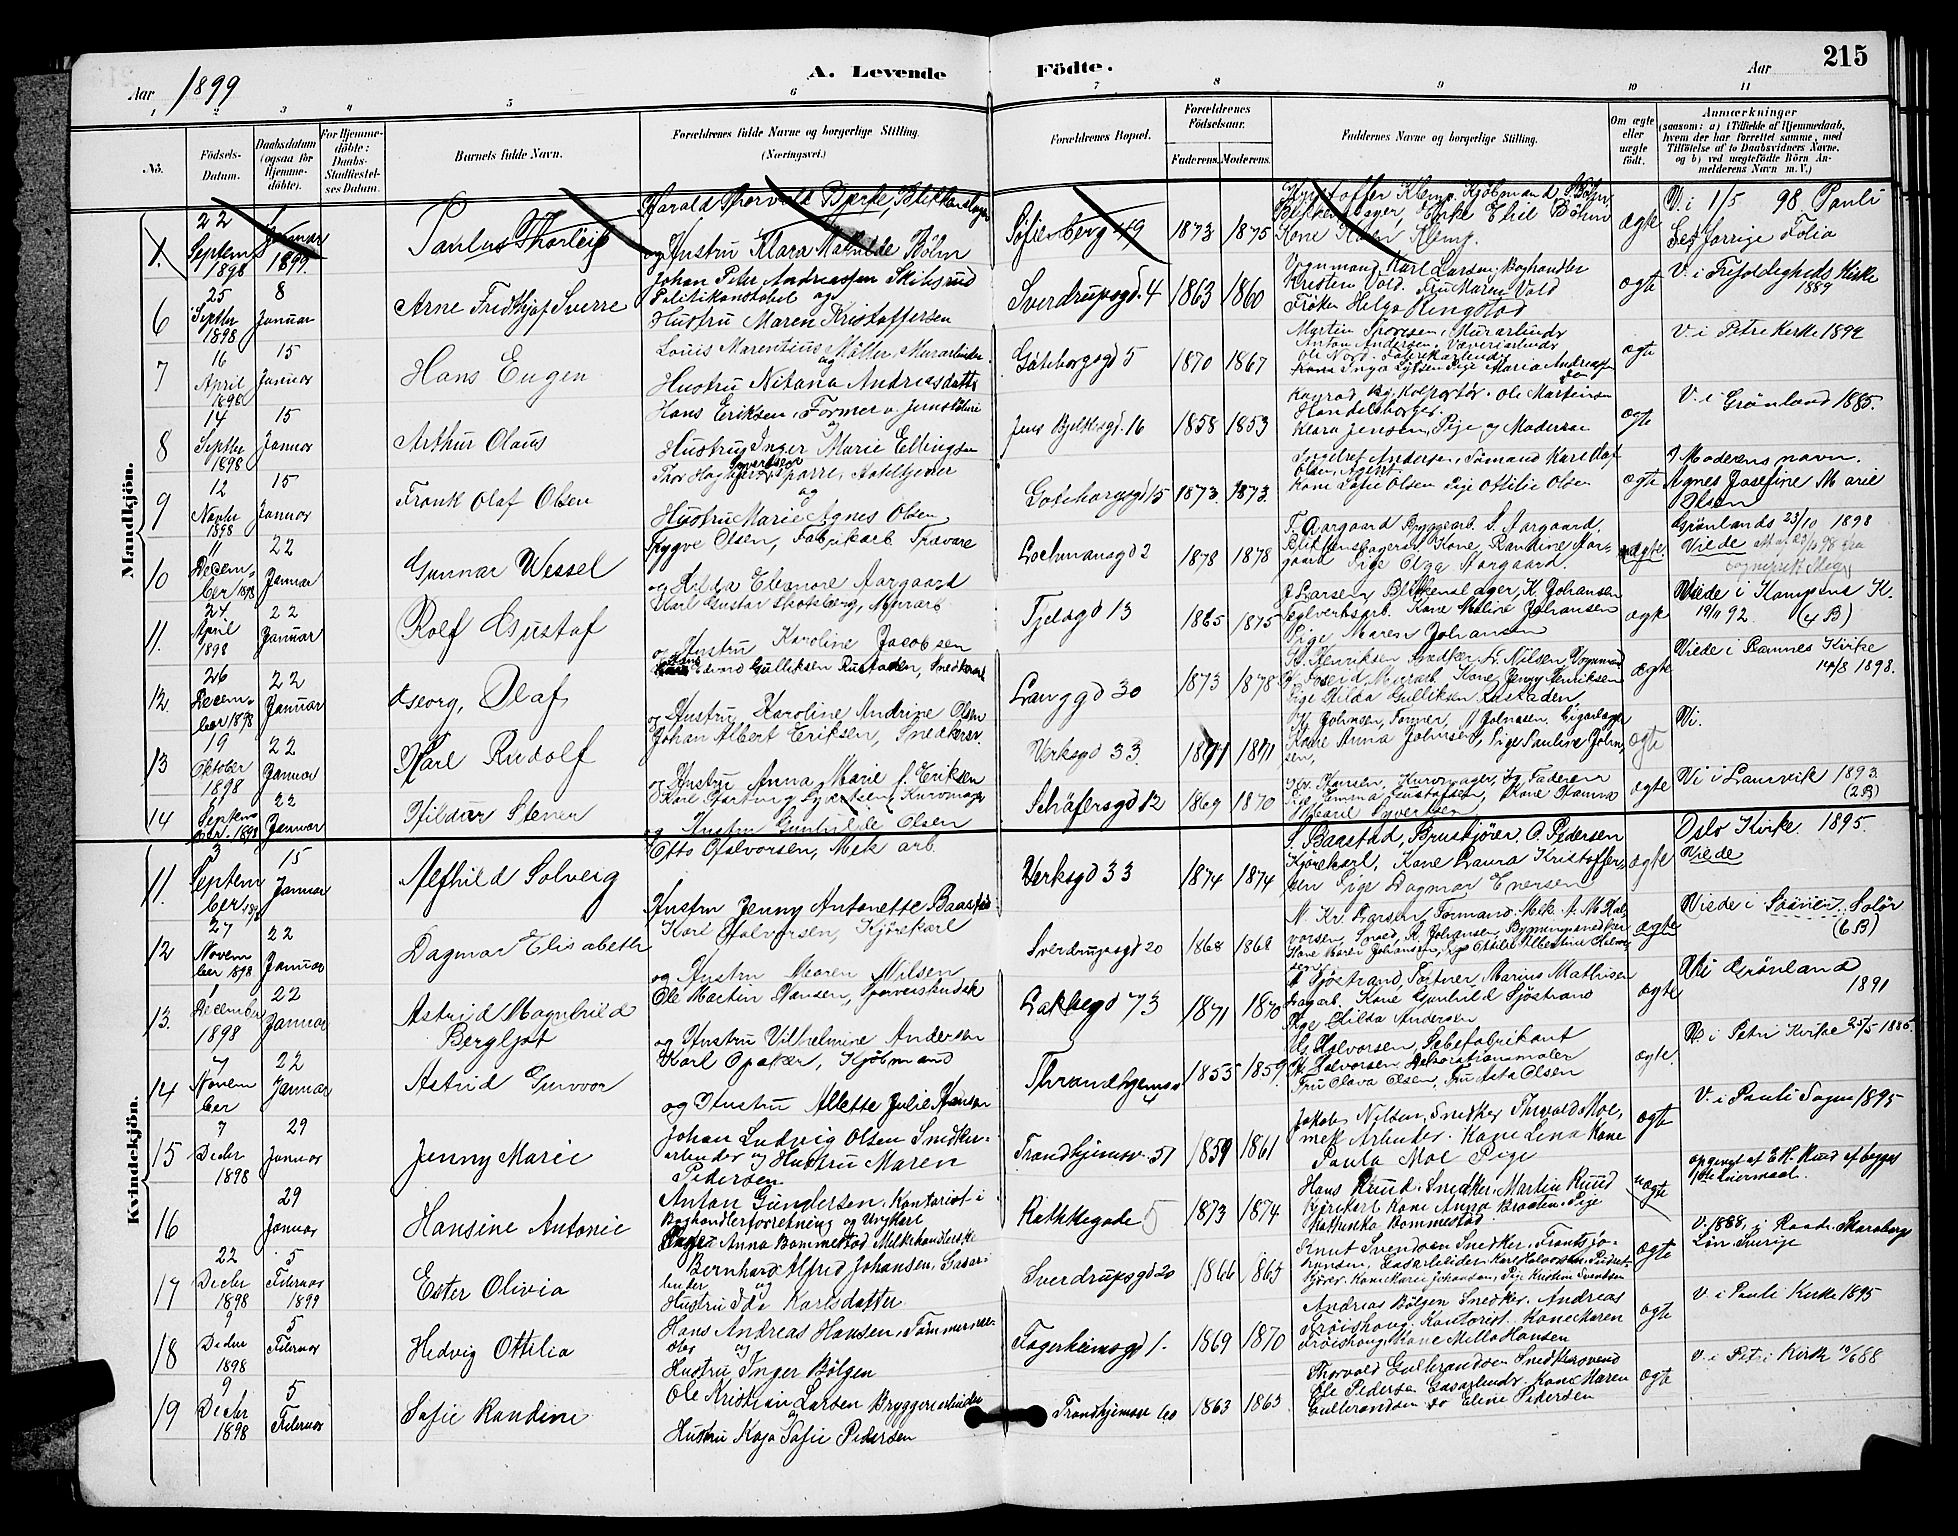 215
Aar 1899
A. Levende Födte.
Aar
1 2 3 4 5 6 7 8 9 10 11
No.
Födsels-Datum.
Daabsdatum (ogsaa for Hjemme-döbte).
For Hjemme-döbte: Daabs-Stadfæstel-ses Datum.
Barnets fulde Navn.
Forældrenes fulde Navne og borgerlige Stilling. (Næringsvei.)
Forældrenes Bopæl.
Forældrenes Födselsaar.
Faderens. Moderens.
Faddernes Navne og borgerlige Stilling.
Om ægte eller uægte födt.
Anmærkninger
(saasom: a) i Tilfælde af Hjemmedaab, hvem der har forrettet samme, med Tilföielse af to Daabsvidners Navne, og b) ved uægtefödte Börn An-melderens Navn m. V.)
Mandkjön.
1. 22 Septem 1898 Januar 1899. Paulus Thorleif
Harald Thorvald Bjerke, Blikkenslager
og Hustru Klara Mathilde Böhn
Sofienberg 49 1873 1875
Kone Klemp.
ægte
V. i 1/5 98 Pauli
Se forrige Folio
6 25 Septbr 1898 8 Januar Arne Fredthjof Sverre
Johan Peter Andreassen Skilsrud
Politikonstabel og
Hustru Maren Kristoffersen
Sverdrupsgd. 4 1863 1860
Vognmand Karl Larsen, Boghandler
Kristen Vold. Fru Maren Vold
Fröken Helga Ringstad
ægte
V. i Trefoldigheds Kirke 1889
7 16 April 1898 15 Januar Hans Eugen
Louis Marentius Möller Murarbeider
og
Hustru Nitana Andreasdatter
Göteborgsgd 5 1870 1867
Anton Andersen. Væveriarbeider
Ole Nord. Fabrikarbeider
ægte
V. i Petri Kirke 1892
8 14 Septbr 1898 15 Januar Arthur Olaus
Hans Eriksen, Former v. Jernstöberi
og
Hustru Inger Marie Ellingsen
Jens Bjelkesgd. 16 1858 1853
Ole Martinsen
Handelsborger.
Klara Jensen, Pige og Moderen
ægte
V. i Grönland 1885.
9 12 Novbr 1898 15 Januar Frank Olaf Olsen
og
Hustru Marie Agnes Olsen
Göteborgsgd 15 1873. 1873.
Ingebret Andersen, Sömand Karl Olaf
Olsen, Agent
Kone Sofie Olsen Pige Ottilie Olsen
ægte
Moderens navn.
Agnes Josefine Marie
Olsen
10 11 Decem-ber 1898 22 Januar Gunnar Wessel
Trygve Olsen, Fabrikarb. Trævare
og Hilda Eleonore Aargaard
Lochmansgd 2 1878 1878
T. Aargaard Byggearb. S. Aargaard,
Blikkenslager, Kone Randine Aar-
gaard Pige Olga Aargaard.
uægte
Grönlands 23/10 1898
Viede
11. 24 April 1898 22 Januar Rolf Gustaf
Karl Gustav Skotsberg, Murarb
og Hustru Karoline Jacobsen
Tjelesgd 13 1865 1875
Larsen, Blikkenslager, K. Johansen
Teglverksarb. Kone Meline Johansen
Pige Maren Johansen
ægte
Viede i Kampens K.
19/11 92. (4 B)
12. 26 Decem-ber 1898 22 Januar Georg, Olaf
Edvind Gulliksen Rustaden, Snedkerarb
og Hustru Karoline Andrine Olsen
Langgd 30 1873 1878
H. Henriksen Snedker, Fr. Nilsen, Vognmand
Murarb Kone Jenny Henriksen
Pige Hilda Gulliksen Rustaden,
ægte
Viede i Ramnes Kirke
14/8 1898.
13 19 Oktober 1898 22 Januar Karl Rudolf
Johan Albert Eriksen, Snedkersv.
og Hustru Anna Marie f. Eriksen
Verksgd 33. 1871 1871
Johnsen, Former, M Johnsen, Cigarlager
Kone Anna Johnsen, Pige Pauline John-
sen,
ægte
Vi.
14 Septem ber. 1898 22 Januar Hildur Stener
Karl Hartvig Syvertsen, Kurvmager
og Hustru Gunhilde Olsen
Schäfersgd 12 1869 1870
Hansen, Kurvmager, og Faderen
Marie Syvertsen
ægte
Vi i Laurvik 1893
(2 B)
Kvindekjön.
11. 3 Septem ber 1898 15 Januar Alfhild Solveig
Otto Halvorsen, Mek arb.
Hustru Jenny Antonette Baastad
Verksgd 33 1874 1874
S. Baastad, Bruskjörer, O. Pedersen
Kjörekarl, Kone Laura Kristoffer-
sen Pige Dagmar Enersen
ægte
Oslo Kirke. 1895.
Viede
12 27 Novem ber 1898 22 Januar Dagmar Elisabeth
Karl Halvorsen, Kjörekarl
og Hustru Maren Nilsen
Sverdrupsgd 20 1868 1868
N. Kr. Larsen, Formand. Mek. A. M. Hal-
vorsen, Smed, A. Johansen, Bygningssnedker
ægte
Viede i Sooner. Solör
(6 B)
13. 1 December 1898 22 Januar Astrid Magnhild
Bergljot
Ole Martin Hansen, Sporveiskudsk
og Hustru Vilhelmine Andersen
Lakkegd 73 1871 1870
Sjöstrand, Portner, Marius Mathisen
Kone Gunhild Sjöstrand
Pige Hilda Andersen
ægte
Vi i Grönland
1891
14 7 Novem ber 22 Januar Astrid Gunvor
Karl Opaker, Kjöbmand
og Hustru Alette Julie Hansen
Thrandhjemsv 4 1855 1859.
G. Halvorsen, Sæbefabrikant
Halvorsen, Dekorationsmaler
Fru Olava Olsen, Fru Asta Olsen
ægte
V i Petri Kirke 25/5 1885
15 7 Decbr 1898 29 Januar Jenny Marie
Johan Ludvig Olsen Snedker-
arbeider og Hustru Maren
Pedersen
Trondhjemsv. 51 1859 1861
Jakob Nilsen, Snedker Thorvald Moe,
Mek Arbeider. Kone Lina Kone
Paula Moe Pige
ægte
V. i Pauli Sogn 1895
16 29 Januar Hansine Antonie
Anton Gundersen, Kontorist i
Boghandlerforretning og Ungkarl
Anna Bommestad Melkehandlerske
Rathkegade 5 1873 1874
Hans Ruud. Snedker. Martin Ruud
Kjörekarl Kone Anna Braaten, Pige
Mathinka Bommestad
uægte
opgivet af H. Ruud af begges
1ste Leiermaal.
17 22 Decbr 1898 5 Februar 1899 Ester Olivia
Bernhard Alfred Johansen, Gasar-
beider og
Hustru Ida Karlsdatter.
Sverdrupsgd 20 1866 1865
Knut Svendsen Snedker. Frants Jo-
hansen, Gasarbeider Karl Halvorsen,
Kone Karen Johansen, Pige Kristine Svendsen
ægte
V. 1888, i Raada Skaraborgs
Län. Sverige
18 9 Decbr 1898 5 Februar Hedvig Ottilia
Hans Andreas Hansen, Tömmermæ-
og
Hustru Inger Bölgen
Fagerheimsgd 1. 1869 1870
Andreas Bölgen Snedker. Andreas
Tröishoug, Kontorist. Kone Karen
Tröishoug, Kone Milla Hansen
ægte
V. i Pauli Kirke 1895
19 9 Decbr 1898 5 Februar Sofie Randine
Ole Kristian Larsen Bryggeriarbeider
og
Hustru Kaja Sofie Pedersen
Trondhjemsv 60 1863 1863
Thorvald Gulbrandsen Snedkersvend
Ole Pedersen Gasarbeider. Kone Maren
Gulbrandsen do Eline Pedersen
ægte
V. i Petri Kirk 10/6 88